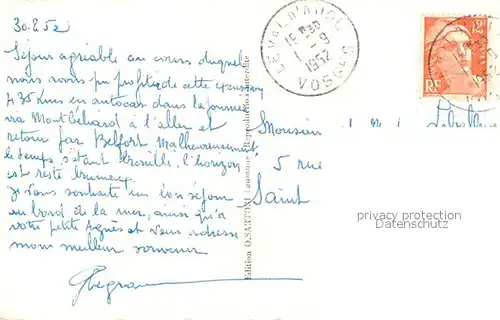 30.8.52
Séjour agréable au cours duquel
nous avons pu profiter de cette excursion
435 Kms en autocar dans la journée
via Montbéliard à l'aller et
retour par Belfort Malheureusement,
le temps s'étant brouillé, l'horizon
est resté brumeux.
Je vous souhaite un bon séjour
au bord de la mer, ainsi qu'à
votre petite Agnès et vous adresse
mon meilleur souvenir
LE VAL D'AJOL
15 30
1 - 9
1952
VOSGES
12F
RF
Edition O. SARTORI Lausanne (Reproduction interdite
Monsieur et M
5 rue
Saint
privacy protection
Datenschutz